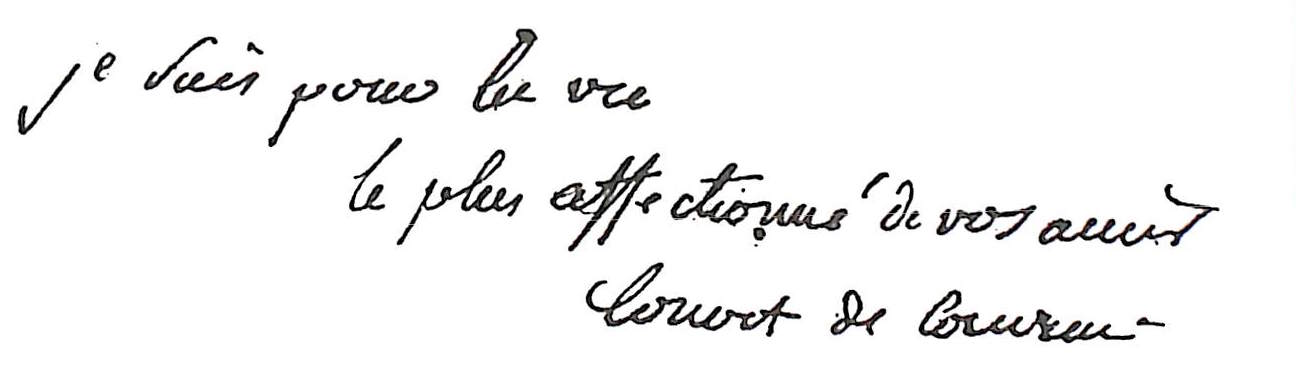 je suis pour la vie
le plus affectionné de vos amis
Louvet de Couvrai